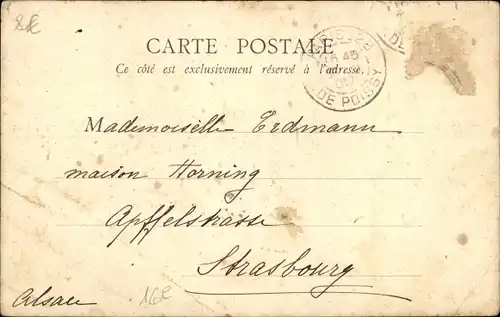 8€
CARTE POSTALE
Ce côté est exclusivement réservé à l'adresse.
DE POISSY
Mademoiselle Erdmann
maison Horning
Apffelstrasse
Strasbourg
Alsace
16e